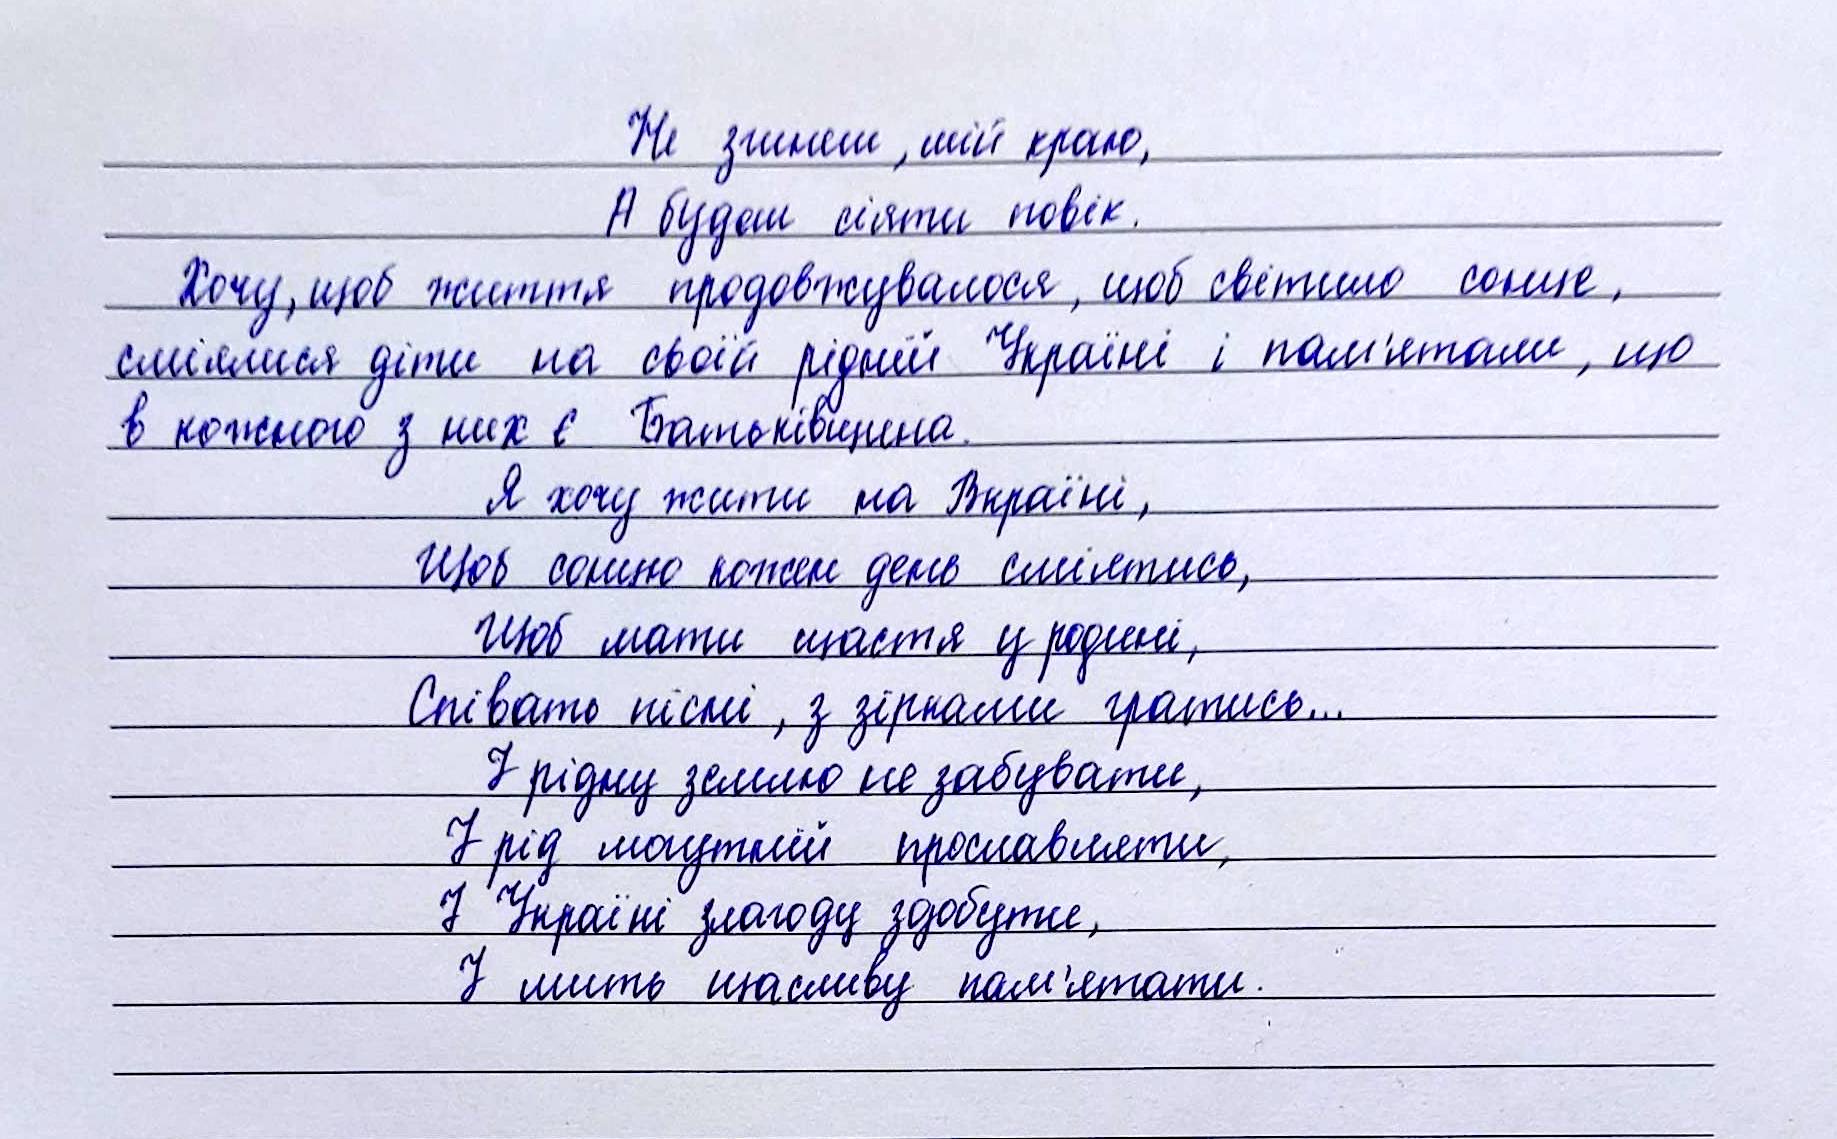 Не згинеш, мій краю,
А будеш сіяти повік.
Хочу, щоб життя продовжувалося, щоб світило сонце,
сміялися діти на своїй рідній Україні і пам'ятали, що
в кожного з них є Батьківщина.
Я хочу жити на Вкраїні,
Щоб сонцю кожен день сміятись,
Щоб мати щастя у родині,
Співать пісні, з зірками гратись...
І рідну землю не забувати,
І рід могутній прославляти,
І Україні злагоду здобути,
І мить щасливу пам'ятати.